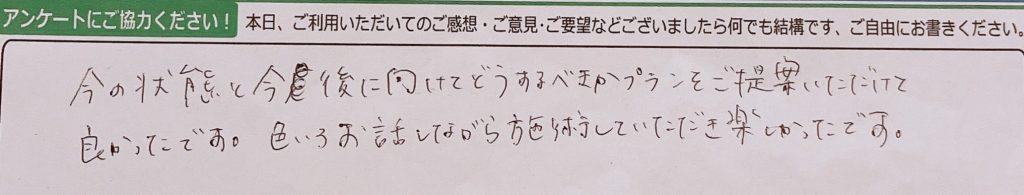 アンケートにご協力ください！ 本日、ご利用いただいてのご感想・ご意見・ご要望などございましたら何でも結構です、ご自由にお書きください。
今の状態と今後に向けてどうするべきかプランをご提案いただけて
良かったです。色いろお話しながら施術していただき楽しかったです。